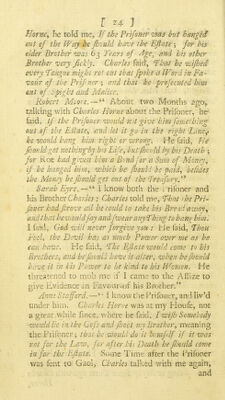 [ 24 ]
Horne, he told me, If the Prisoner was but hanged
out of the Way he should have the Estate; for his
elder Brother was 63 Years of Age, and his other
Brother very sickly. Charles said, That he wished
every Tongue might rot out that spoke a Word in Fa-
vour of the Prisoner; and that he prosecuted him
out of Spight and Malice.
Robert Moore.—“ About two Months ago,
talking with Charles Horne about the Prisoner, he
said, If the Prisoner would not give him something
out of the Estate, and let it go in the right Line,
he would hang him right or wrong. He said, He
should get nothing by his Life, but should by his Death;
for Roe had given him a Bond for a Sum of Money,
if he hanged him, which he should be paid, besides
the Money he should get out of the Treasury.”
Sarah Eyre.—“ I know both the Prisoner and
his Brother Charles: Charles told me, That the Pri-
soner had strove all he could to take his Bread away,
and that he would say and swear any Thing to hang him.
I said, God will never forgive you: He said, Thou
Fool, the Devil has as much Power over me as he
can have. He said, The Estate would come to his
Brothers, and he should have it after, when he should
have it in his Power to be kind to his Women. He
threatened to mob me if I came to the Assize to
give Evidence in Favour of his Brother.”
Anne Stafford.—“ I know the Prisoner, and liv'd
under him. Charles Horne was at my House, not
a great while since, where he said, I wish Somebody
would lie in the Goss and shoot my Brother, meaning
the Prisoner; that he would do it himself if it was
not for the Law, for after his Death he should come
in for the Estate. Some Time after the Prisoner
was sent to Gaol, Charles talked with me again,
and